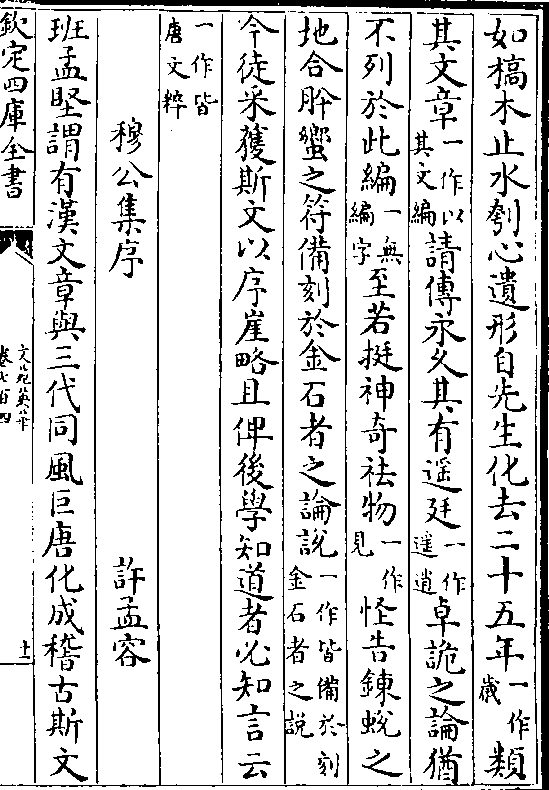 如槁木止水刳心遺形自先生化去二十五年一作歲類
其文章一作以其文編請傳永久其有遥廷一作遥逍卓詭之論猶
不列於此編一無編字至若挺神奇祛物一作見怪告錬蛻之
地合肸蠁之符備刻於金石者之論説一作皆備於刻金石者之説
今徒采獲斯文以序崖略且俾後學知道者必知言云
一作皆唐文粹
穆公集序
許孟容
班孟堅謂有漢文章與三代同風巨唐化成稽古斯文
欽定四庫全書
文苑英華
卷七百四
十一